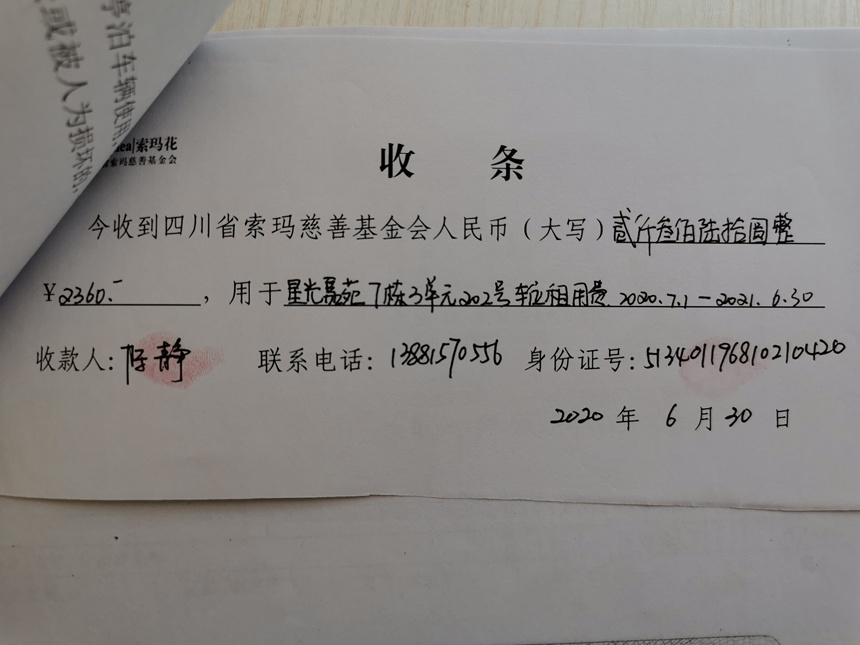 停泊车辆使用
或被人为损坏的
索玛花
索玛慈善基金会
收 条
今收到四川省索玛慈善基金会人民币（大写）贰仟叁佰陆拾圆整
￥2360.-，用于星光嘉苑7栋3单元202号车位租用费 2020.7.1-2021.6.30
收款人：陈静 联系电话：13881570556 身份证号：513401196810210420
2020 年 6 月 30 日